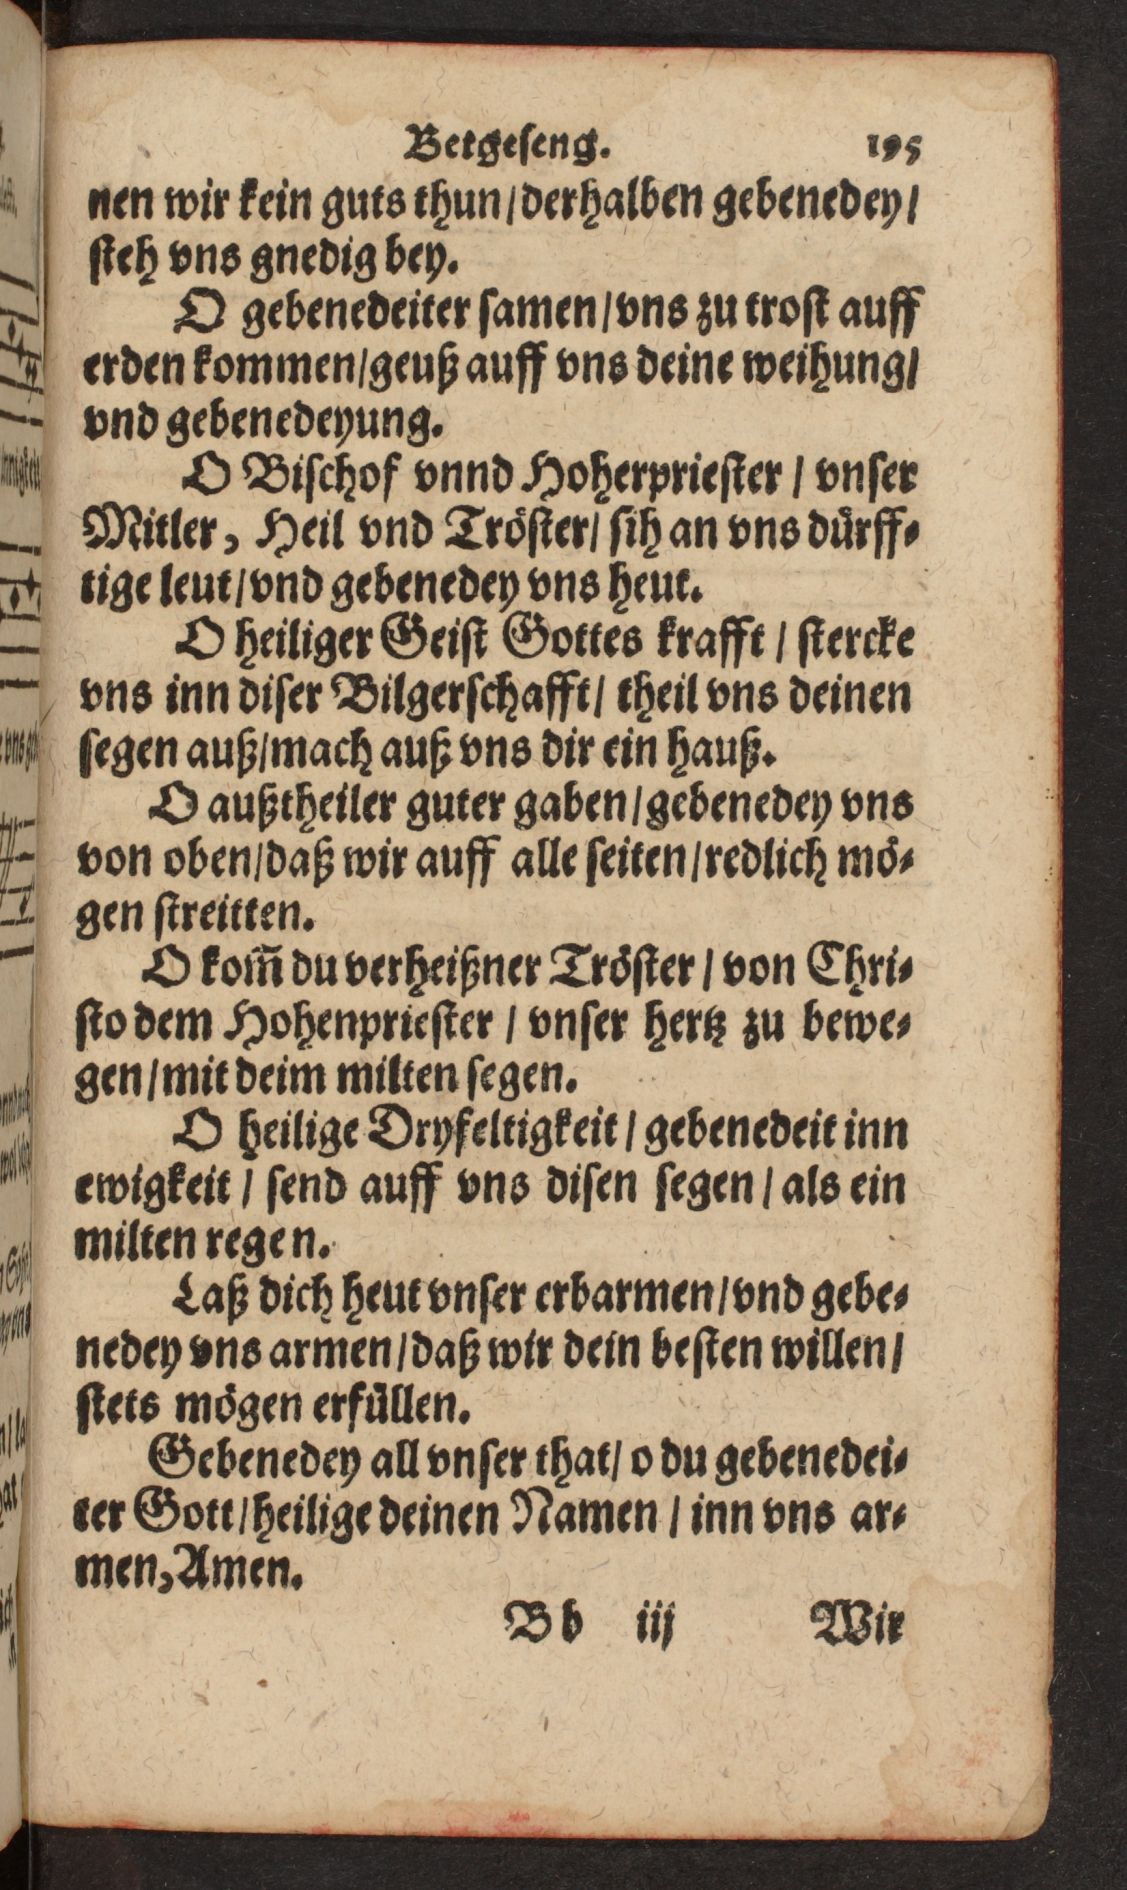 Betgeseng. 195
nen wir kein guts thun/derhalben gebenedey/
steh vns gnedig bey.
O gebenedeiter samen/vns zu trost auff
erden kommen/geuß auff vns deine weihung/
vnd gebenedeyung.
O Bischof vnnd Hoherpriester / vnser
Mitler, Heil vnd Tröster/ sih an vns dürff-
tige leut/vnd gebenedey vns heut.
O heiliger Geist Gottes krafft / stercke
vns inn diser Bilgerschafft/ theil vns deinen
segen auß/mach auß vns dir ein hauß.
O außtheiler guter gaben/gebenedey vns
von oben/daß wir auff alle seiten/redlich mö-
gen streitten.
O kom̄ du verheißner Tröster / von Chri-
sto dem Hohenpriester / vnser hertz zu bewe-
gen/mit deim milten segen.
O heilige Dryfeltigkeit / gebenedeit inn
ewigkeit / send auff vns disen segen / als ein
milten regen.
Laß dich heut vnser erbarmen/vnd gebe-
nedey vns armen/daß wir dein besten willen/
stets mögen erfüllen.
Gebenedey all vnser that/ o du gebenedei-
ter Gott/heilige deinen Namen / inn vns ar-
men, Amen.
Bb iij Wir